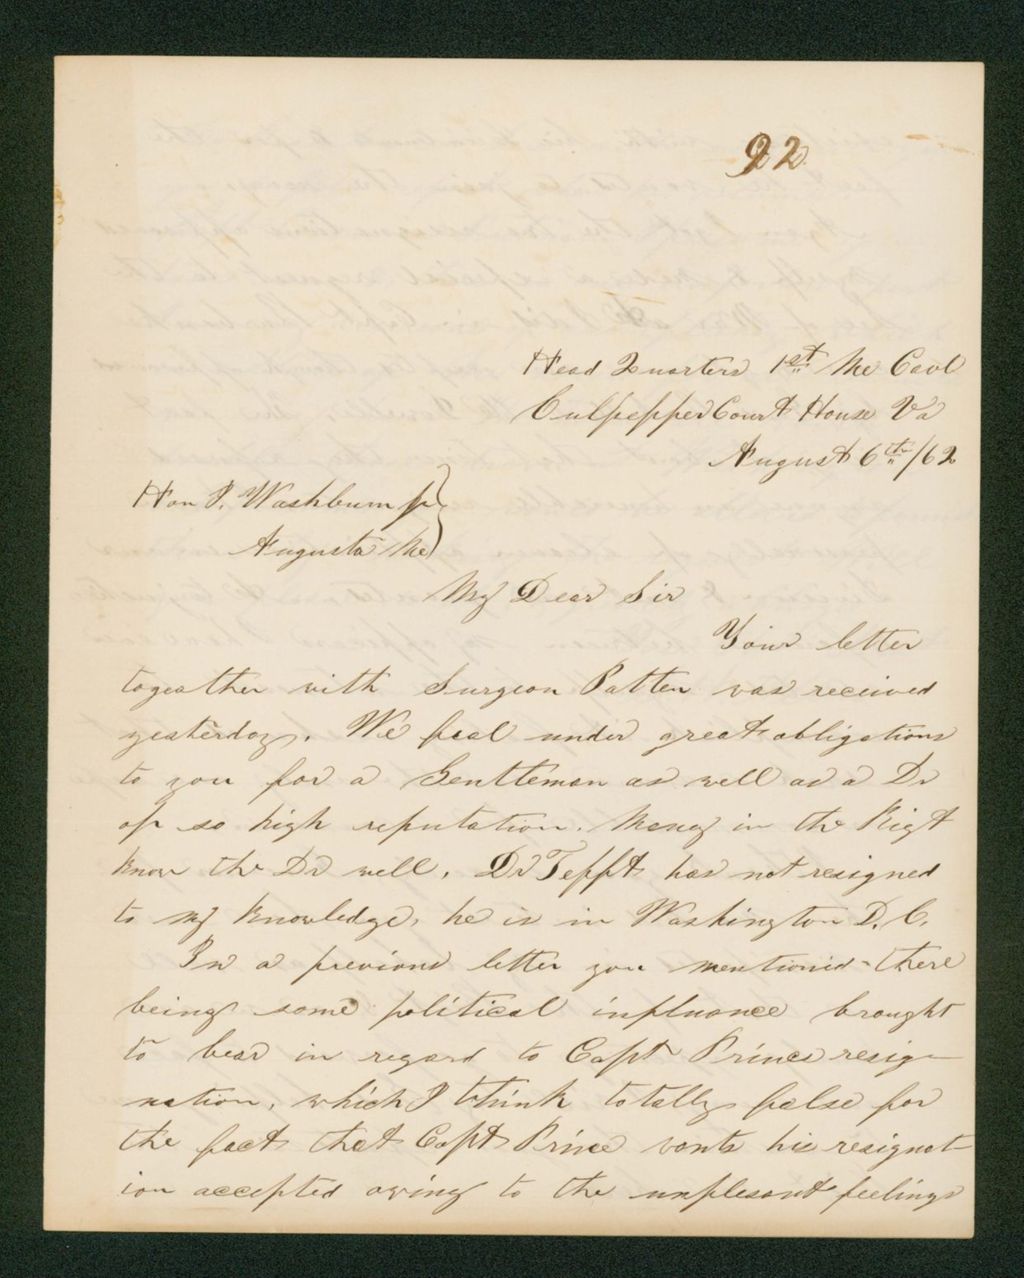 92
Head Quarters 1st Me Cavl
Culpepper Court House Va
August 6th /62
Hon I. Washburn jr
Augusta Me
My Dear Sir
Your letter
togeather with Surgeon Patten was received
yesterday. We feal under great obligations
to you for a Gentleman as well as a Dr
of so high reputation. Many in the Rigt
know the Dr well. Dr Tefft has not resigned
to my knowledge, he is in Washington D.C.
In a previous letter you mentioned there
being some political influance brought
to bear in regard to Capt Princes resig-
nation, which I think totally false for
the fact that Capt Prince wants his resignat-
ion accepted owing to the unplesant feelings